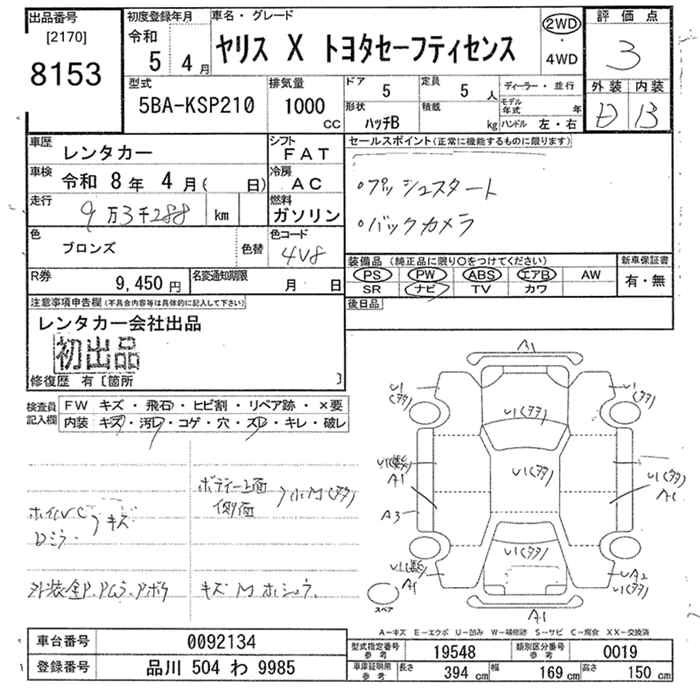 出品番号
[2170]
8153
初度登録年月
令和 5 4月
車名・グレード
ヤリス X トヨタセーフティセンス
2WD
・
4WD
評価点
3
外装 内装
B
型式
5BA-KSP210
排気量
1000
CC
ドア
5
定員
5人
形状
ハッチB
積載
kg
ディーラー・並行
モデル年式 年
ハンドル 左・右
車歴
レンタカー
シフト
FAT
車検
令和 8年 4月( 日)
冷房
AC
走行
9万3千288 km
燃料
ガソリン
色
ブロンズ
色替
色コード
4V8
R券
9,450円
名変通知期限
月 日
セールスポイント(正常に機能するものに限ります)
○プッシュスタート
○バックカメラ
装備品(純正品に限り○をつけてください)
PS PW ABS エアB AW
SR ナビ TV カワ
新車保証書
有・無
後日品
注意事項申告欄(不具合内容等は具体的に記入して下さい)
レンタカー会社出品
初出品
修復歴 有〔箇所 〕
検査員
記入欄
FW キズ・飛石・ヒビ割・リペア跡・×要
内装 キズ・汚レ・コゲ・穴・スレ・キレ・破レ
キズ
Dミラ
ボディー上面
側面
小M(タタ)
キズ M ホシュウ
A1
U1
(タタ)
U1
(タタ)
U1(タタ)
U1(タタ)
U1(タタ)
A1
A3
U1(タタ)
A1
UA2
U1(タタ)
スペア
A1
A-キズ E-エクボ U-凹み W-補修跡 S-サビ C-腐食 XX-交換済
車台番号
0092134
登録番号
品川 504 わ 9985
型式指定番号
参考
19548
類別区分番号
参考
0019
車庫証明用
参考
長さ
394 cm
幅
169 cm
高さ
150 cm